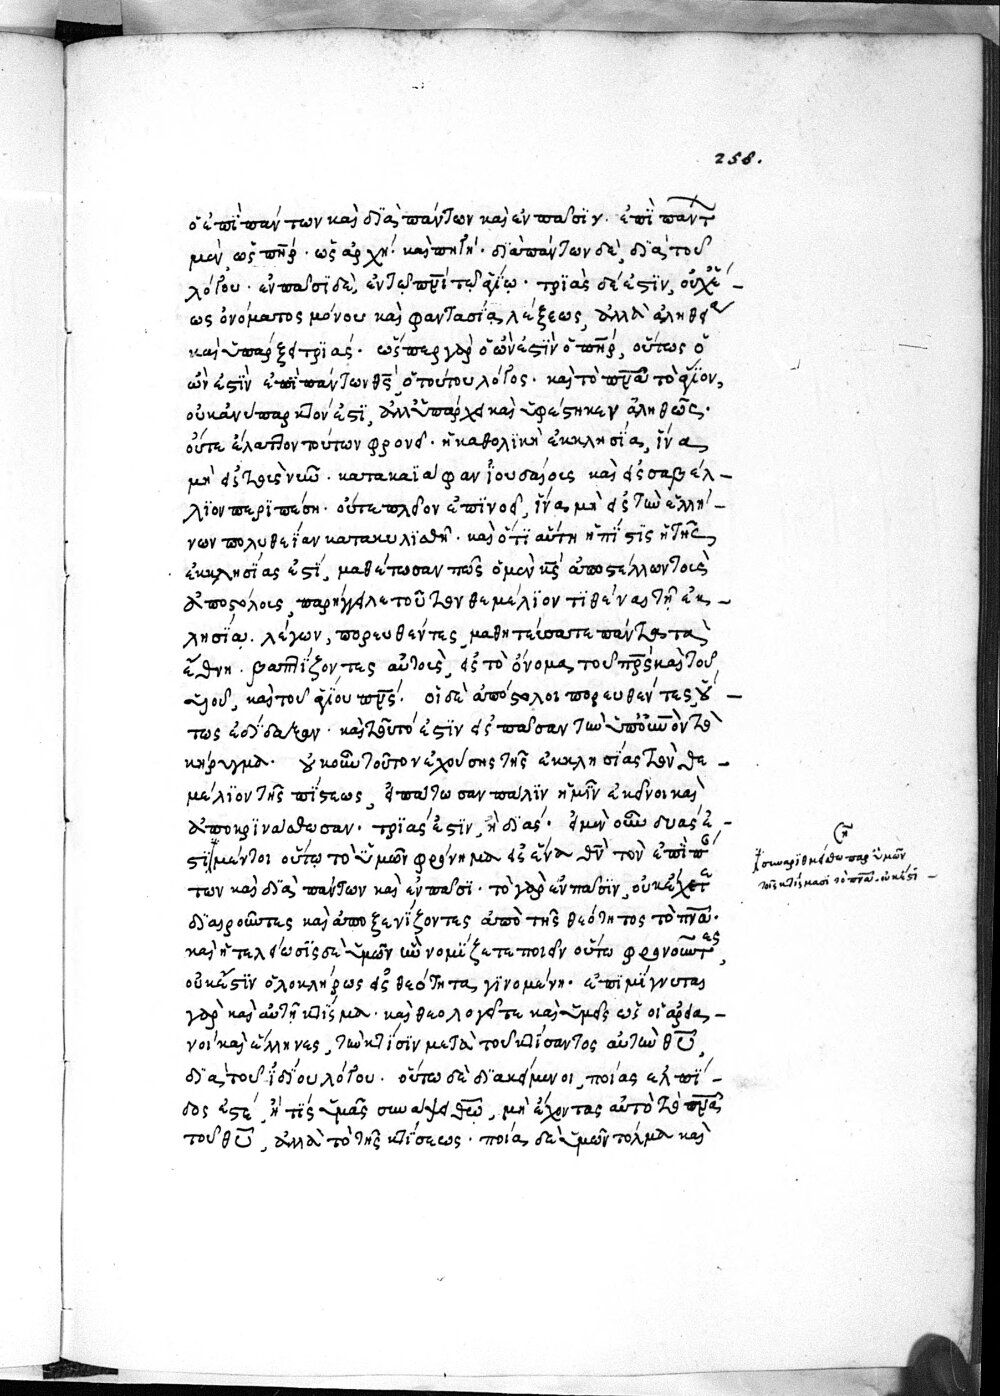 258.
ὁ ἐπὶ πάντων καὶ διὰ πάντων καὶ ἐν πᾶσιν. ἐπὶ πάντ
μὲν, ὡς πηρ. ὡς ἀρχὴ. καὶ πηγὴ. διὰ πάντων δὲ, διὰ τοῦ
λόγου. ἐν πᾶσι δὲ, ἐν τῷ πνι τῷ ἁγίῳ. τριὰς δέ ἐστιν, οὐχ ἕ –
ως ὀνόματος μόνου καὶ φαντασίας λέξεως, ἀλλὰ ἀληθεί
καὶ ὑπάρξει τριάς. ὥσπερ γὰρ ὁ ὤν ἐστὶν ὁ πηρ, οὕτως ὁ
ὤν ἐστὶν ἐπὶ πάντων θς ὁ τούτου λόγος. καὶ τὸ πνα τὸ ἅγιον,
οὐκ ἀνύπαρκτον ἐστὶ, ἀλλ' ὑπάρχει καὶ ὑφέστηκεν ἀληθῶς.
οὔτε ἔλαττον τούτων φρονεῖ. ἡ καθολικὴ ἐκκλησία, ἵνα
μὴ εἰς τοὺς νῦν. κατα καϊάφαν ἰουδαίοις καὶ εἰς σαβέλ –
λιον περιπέσῃ. οὔτε πλεῖον ἐπινοεῖ, ἵνα μὴ εἰς τὴν ἑλλή –
νων πολυθεΐαν κατακυλισθῇ. καὶ ὅτι αὕτη ἡ πίστις τῆς
ἐκκλησίας ἐστὶ, μαθέτωσαν πῶς ὁ μὲν κς ἀποστέλλων τοὺς
ἀποστόλους, παρήγγειλε τοῦτον θεμέλιον τιθέναι τῇ ἐκ –
λησίᾳ. λέγων, πορευθέντες, μαθητεύσατε πάντα τὰ
ἔθνη. βαπτίζοντες αὐτοὺς, εἰς τὸ ὄνομα τοῦ πρς καὶ τοῦ
υἱοῦ, καὶ τοῦ ἁγίου πνς. οἱ δὲ ἀπόστολοι πορευθέντες, οὕ –
τως ἐδίδαξαν. καὶ τοῦτό ἐστιν εἰς πᾶσαν τὴν ὑπ' οὐνὸν τὸ
κήρυγμα. οὐκοῦν τοῦτον ἐχούσης τῆς ἐκκλησίας τὸν θε –
μέλιον τῆς πίστεως, εἰπάτωσαν πάλιν ἡμῖν ἐκεῖνοι καὶ
ἀποκρινάσθωσαν. τριάς ἐστὶν, ἢ δυάς. εἰ μὲν οὖν δυάς ἐ –
στὶ μέντοι οὕτω τὸ ὑμῶν φρόνημα εἰς ἕνα θν τὸν ἐπὶ π
των καὶ διὰ πάντων καὶ ἐν πᾶσι. τὸ γὰρ ἐν πᾶσιν, οὐκ ἔχετε
διαιροῦντες καὶ ἀποξενίζοντες ἀπὸ τῆς θεότητος τὸ πνα.
καὶ ἡ τελείωσις δὲ ὑμῶν ἣν νομίζετε ποιεῖν οὕτω φρονοῦντες,
οὐκ ἔστιν ὁλοκλήρως εἰς θεότητα, γινομένη. ἐπιμίγνυται
γὰρ καὶ αὐτῇ κτίσμα. καὶ θεολογεῖτε καὶ ὑμεῖς ὡς οἱ ἀρεια –
νοὶ καὶ ἕλληνες, τὴν κτίσιν μετὰ τοῦ κτίσαντος αὐτὴν θυ,
διὰ τοῦ ἰδίου λόγου. οὕτω δὲ διακείμενοι, ποίας ἐλπί –
δος ἐστέ, ἢ τίς ὑμᾶς συνάψει θεῷ, μὴ ἔχοντας αὐτὸ τὸ πνα
τοῦ θυ, ἀλλὰ τὸ τῆς κτίσεως. ποία δὲ ὑμῶν τόλμα καὶ
συναριθμείσθω παρ' ὑμῶν
τοῖς κτίσμασι τὸ πνα. οὐκ ἔστι –